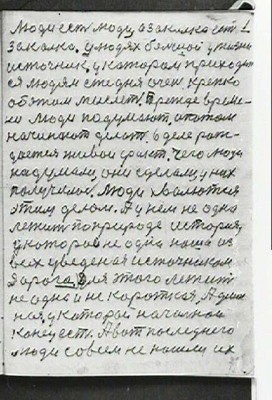 Люди есть люди, а закалка есть
закалка. у людях бываюи у жизни
источник, у котором приходит
ся людям сегодня очен крепко
об этом мыслеть. Прежде време-
ни люди подумают, а потом
начинают делать. в деле рож-
дается живои факт, чего люди
надумали, они сделали, у них
получилос. Люди хвалются
этим делом. А у нем не одна
лежить по природе история,
у которой не одна наша из
всех уведеная источником
дарога. Для этого лежить
не одна и не кароткая, А длин
ная, у которой начатои
конец есть. А вот последнего
люди совсем не нашли их